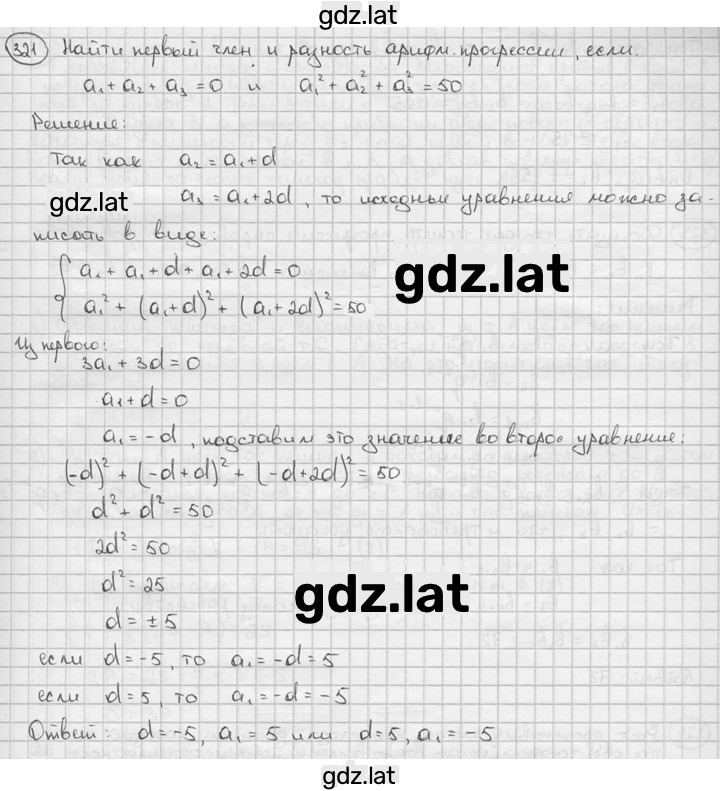 gdz.lat
321 Найти первый член и разность арифм. прогрессии, если.
a₁ + a₂ + a₃ = 0 и a₁² + a₂² + a₃² = 50
Решение:
Так как a₂ = a₁ + d
gdz.lat
a₃ = a₁ + 2d, то исходные уравнения можно за-
писать в виде:
{ a₁ + a₁ + d + a₁ + 2d = 0
gdz.lat
a₁² + (a₁ + d)² + (a₁ + 2d)² = 50
Из первого:
3a₁ + 3d = 0
a₁ + d = 0
a₁ = -d, подставим это значение во второе уравнение:
(-d)² + (-d + d)² + (-d + 2d)² = 50
d² + d² = 50
2d² = 50
d² = 25
gdz.lat
d = ± 5
если d = -5, то a₁ = -d = 5
если d = 5, то a₁ = -d = -5
Ответ: d = -5, a₁ = 5 или d = 5, a₁ = -5
gdz.lat